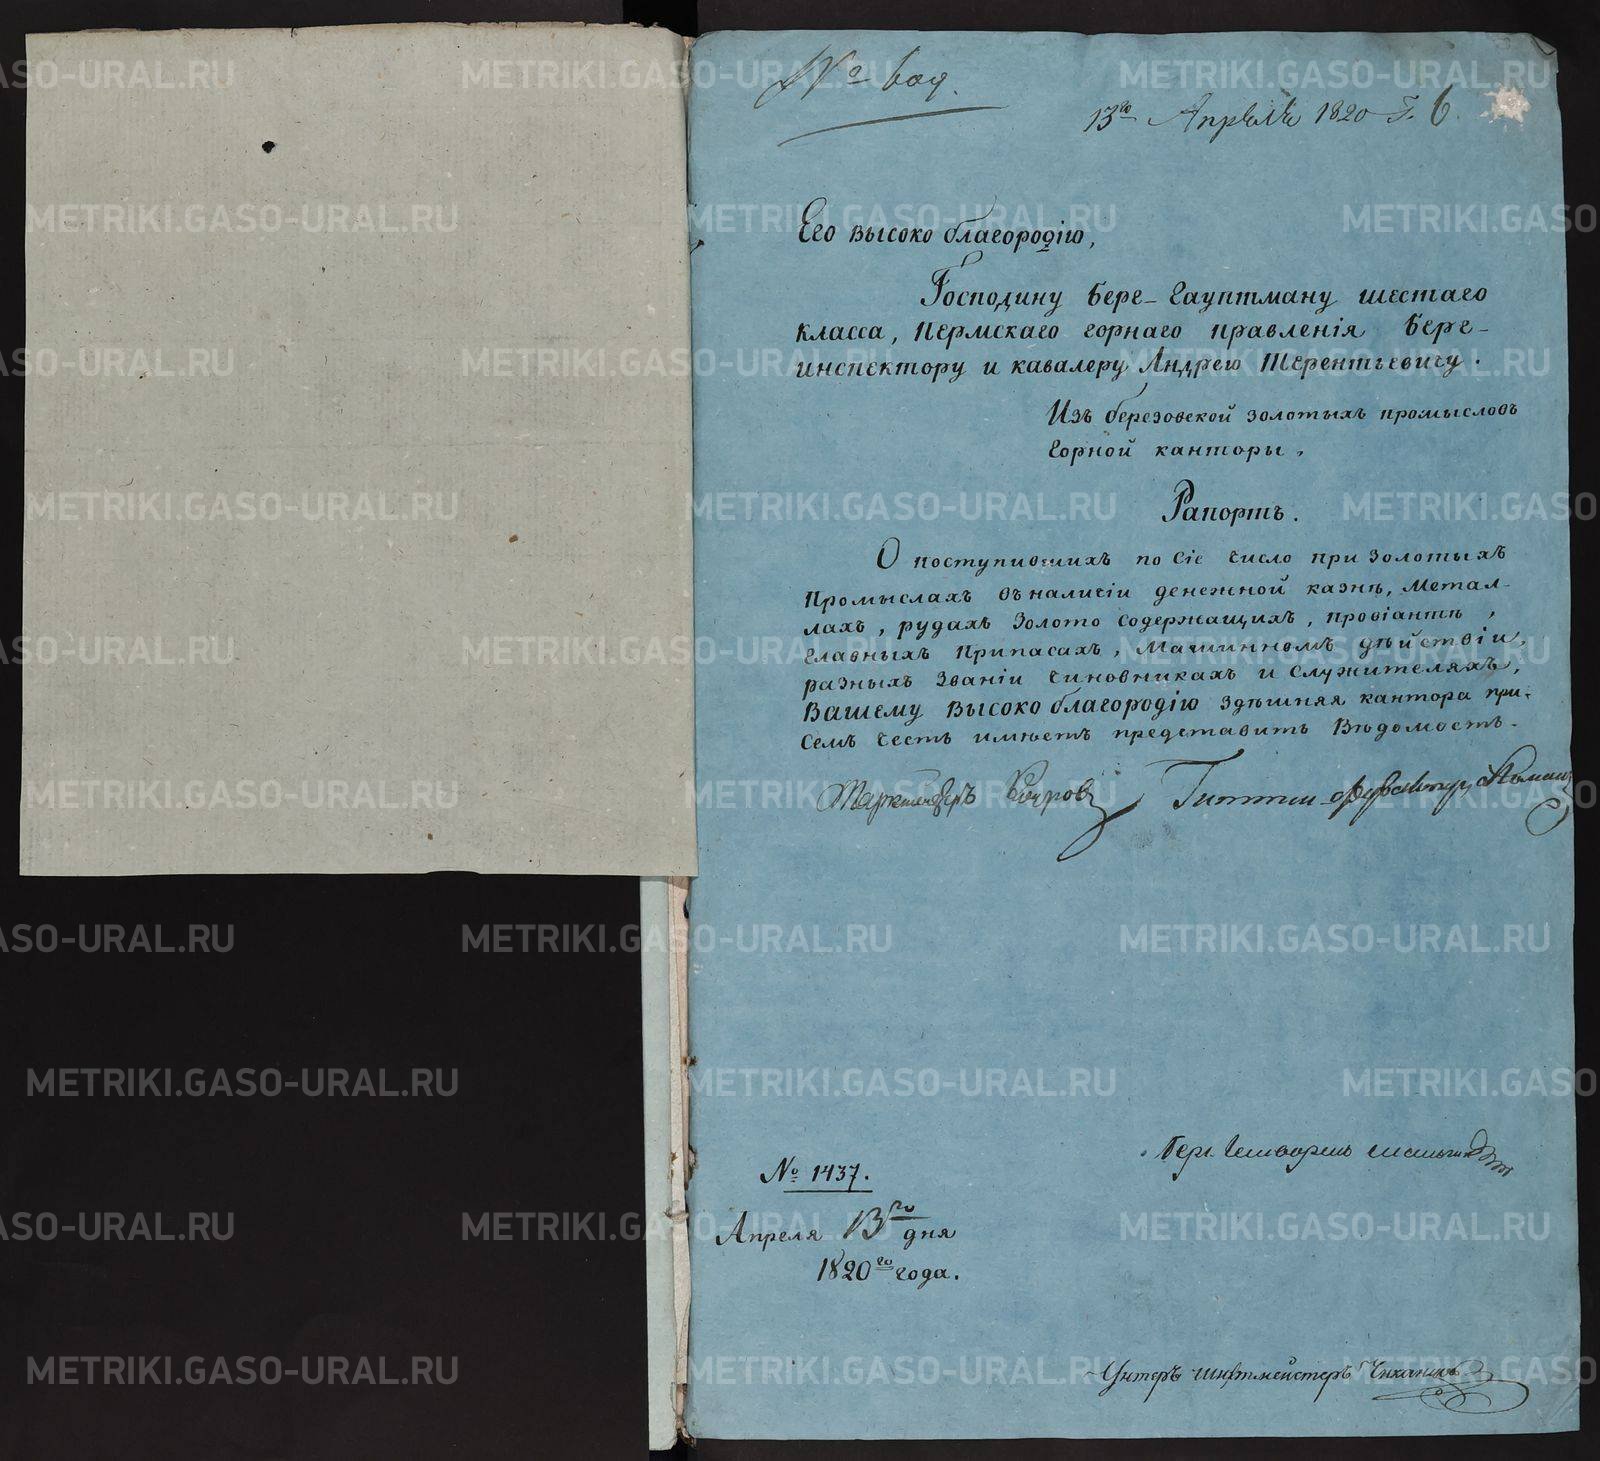 №
13го Апреля 1820 Г. 6
Его высоко благородію,
Господину Берг-Гауптману шестаго
класса, Пермскаго горнаго правленія Берг-
инспектору и кавалеру Андрею Терентьевичу.
Изъ березовской золотыхъ промысловъ
Горной канторы.
Рапортъ.
О поступившихъ по сіе число при золотыхъ
Промыслахъ въ наличіи денежной казнѣ, Метал-
лахъ, рудахъ Золото содержащихъ, провіантѣ,
Главныхъ Припасахъ, Машинномъ дѣйствіи,
разныхъ званіи чиновникахъ и Служителяхъ,
Вашему Высоко благородію здѣшняя кантора при-
Семъ честь имѣетъ представить Вѣдомость.
Маркшейдеръ
Гиттен-фервалтер
№ 1437.
Апреля 13го дня
1820го года.
Берг гешворенъ
Унтеръ шихтмейстеръ
METRIKI.GASO-URAL.RU